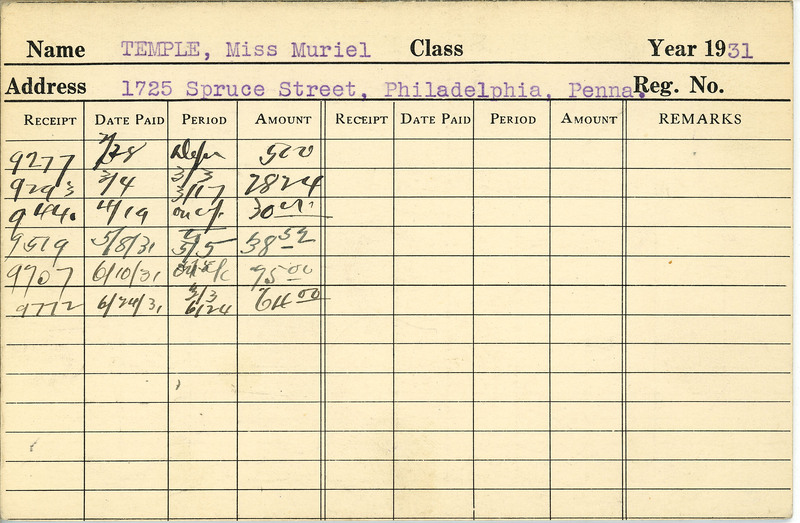 Name TEMPLE, Miss Muriel Class Year 1931
Address 1725 Spruce Street, Philadelphia, Penna. Reg. No.
RECEIPT DATE PAID PERIOD AMOUNT RECEIPT DATE PAID PERIOD AMOUNT REMARKS
9277 2/28 500
9293 3/4 3/3 3/17 2824
9440 4/19 on a/c 30
9519 5/8/31 5/5 38
9707 6/10/31 95 00
9772 6/24/31 3/3 6/24 64 00